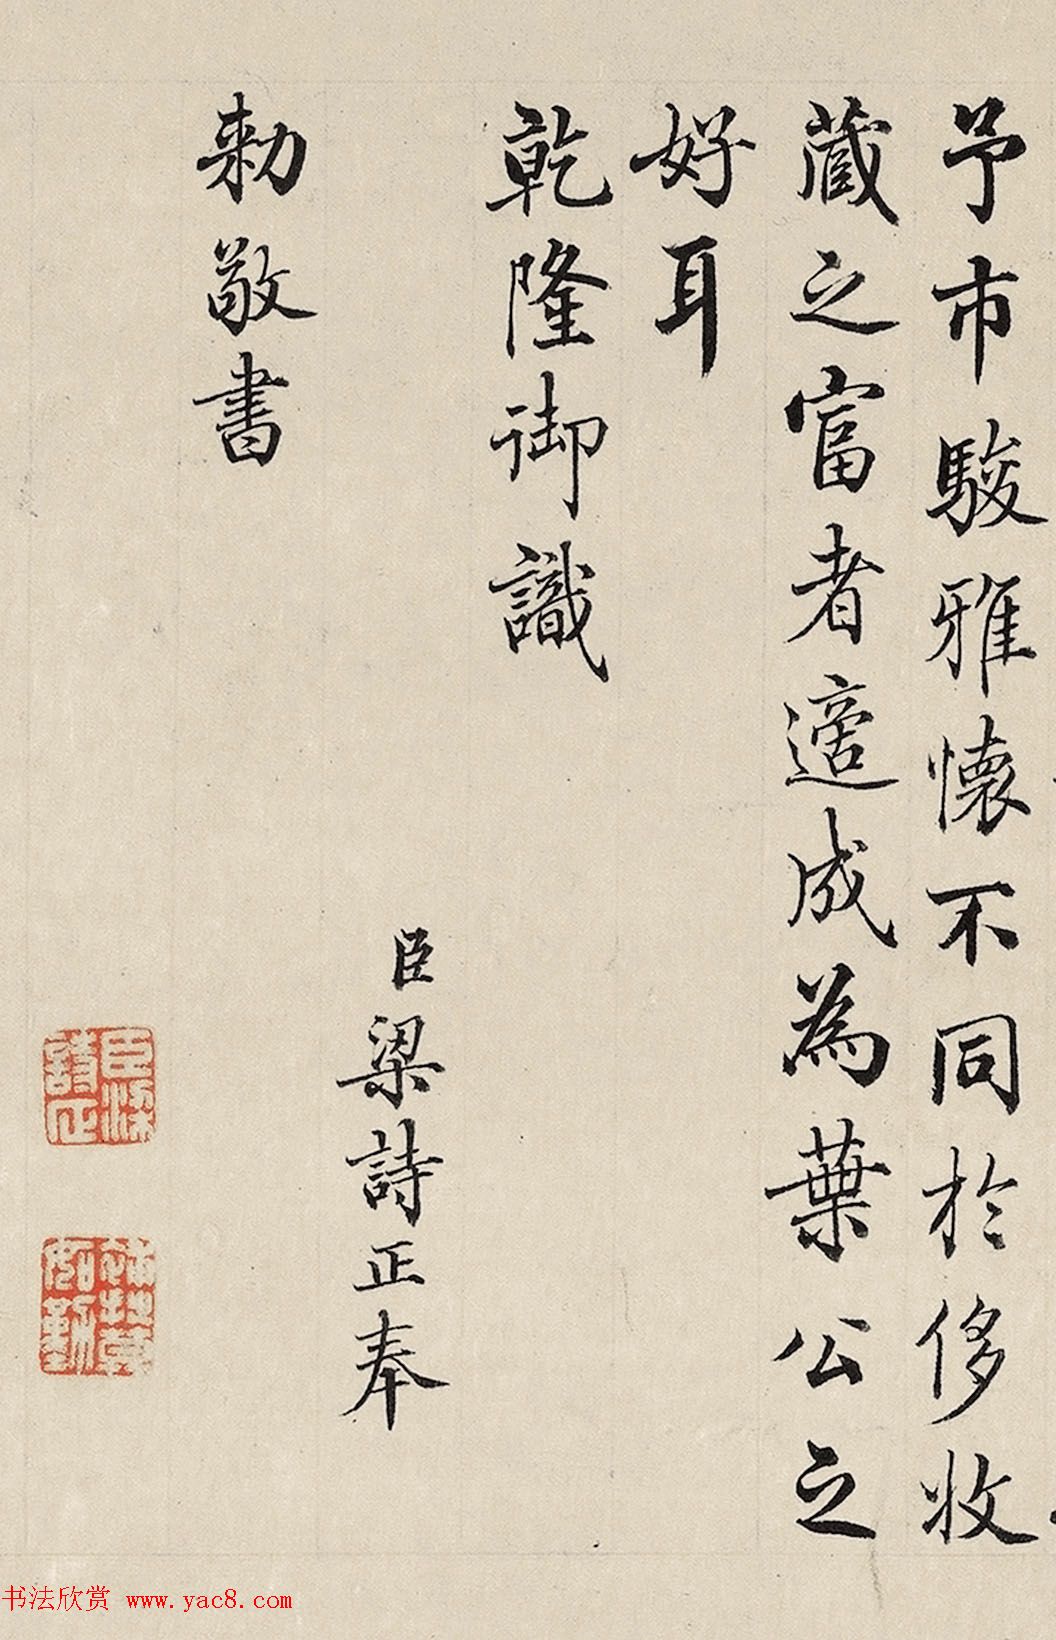 予市駿雅懷不同於侈收
蔵之富者適成為葉公之
好耳
乾隆御識
臣梁詩正奉
勅敬書
臣梁
詩正
书法欣赏 www.yac8.com